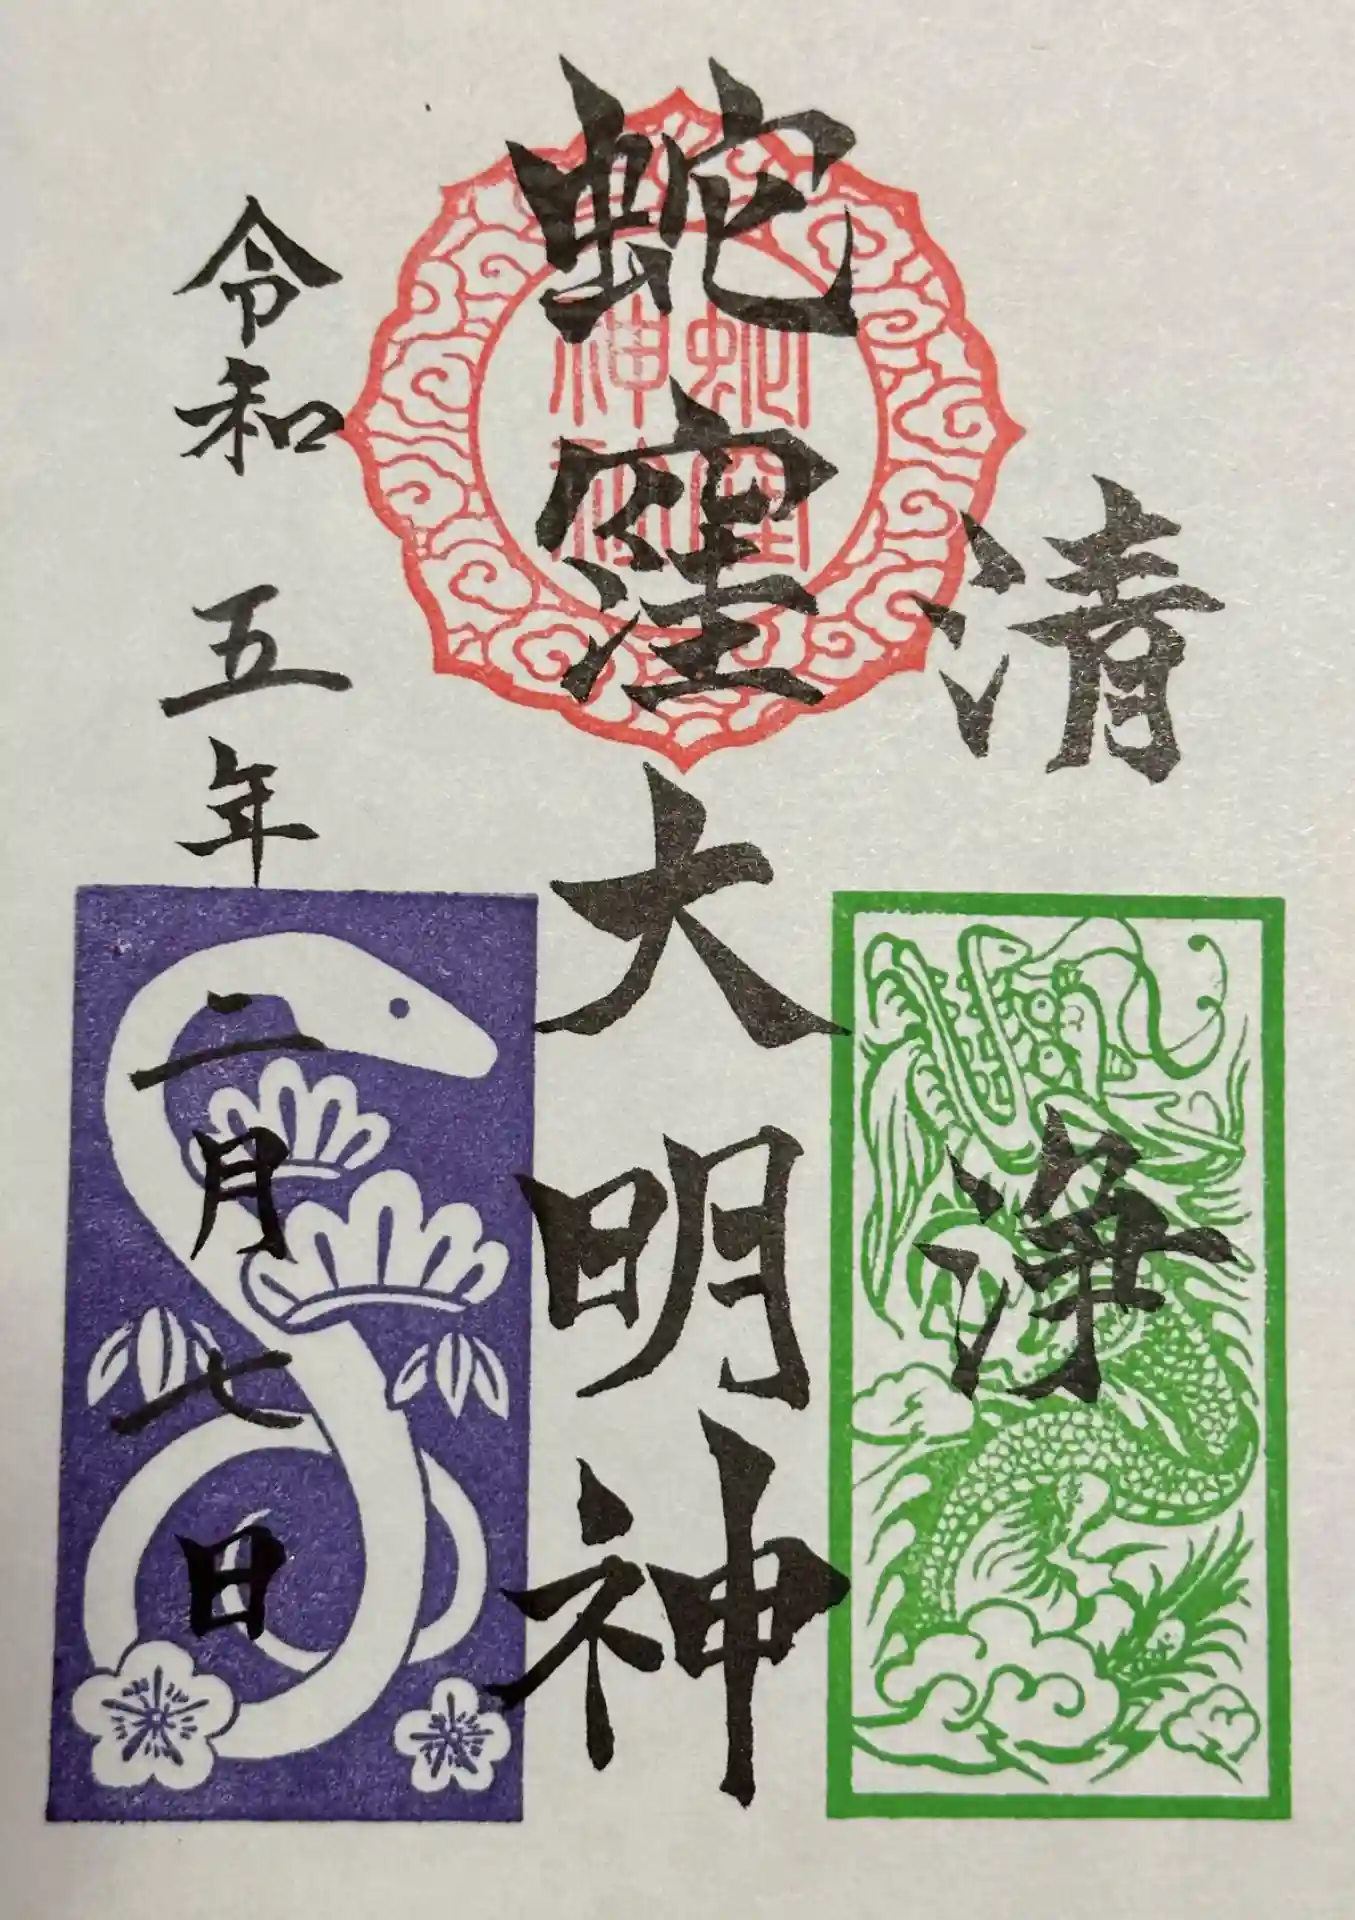 清浄
蛇窪大明神
蛇窪
神社
令和五年二月七日